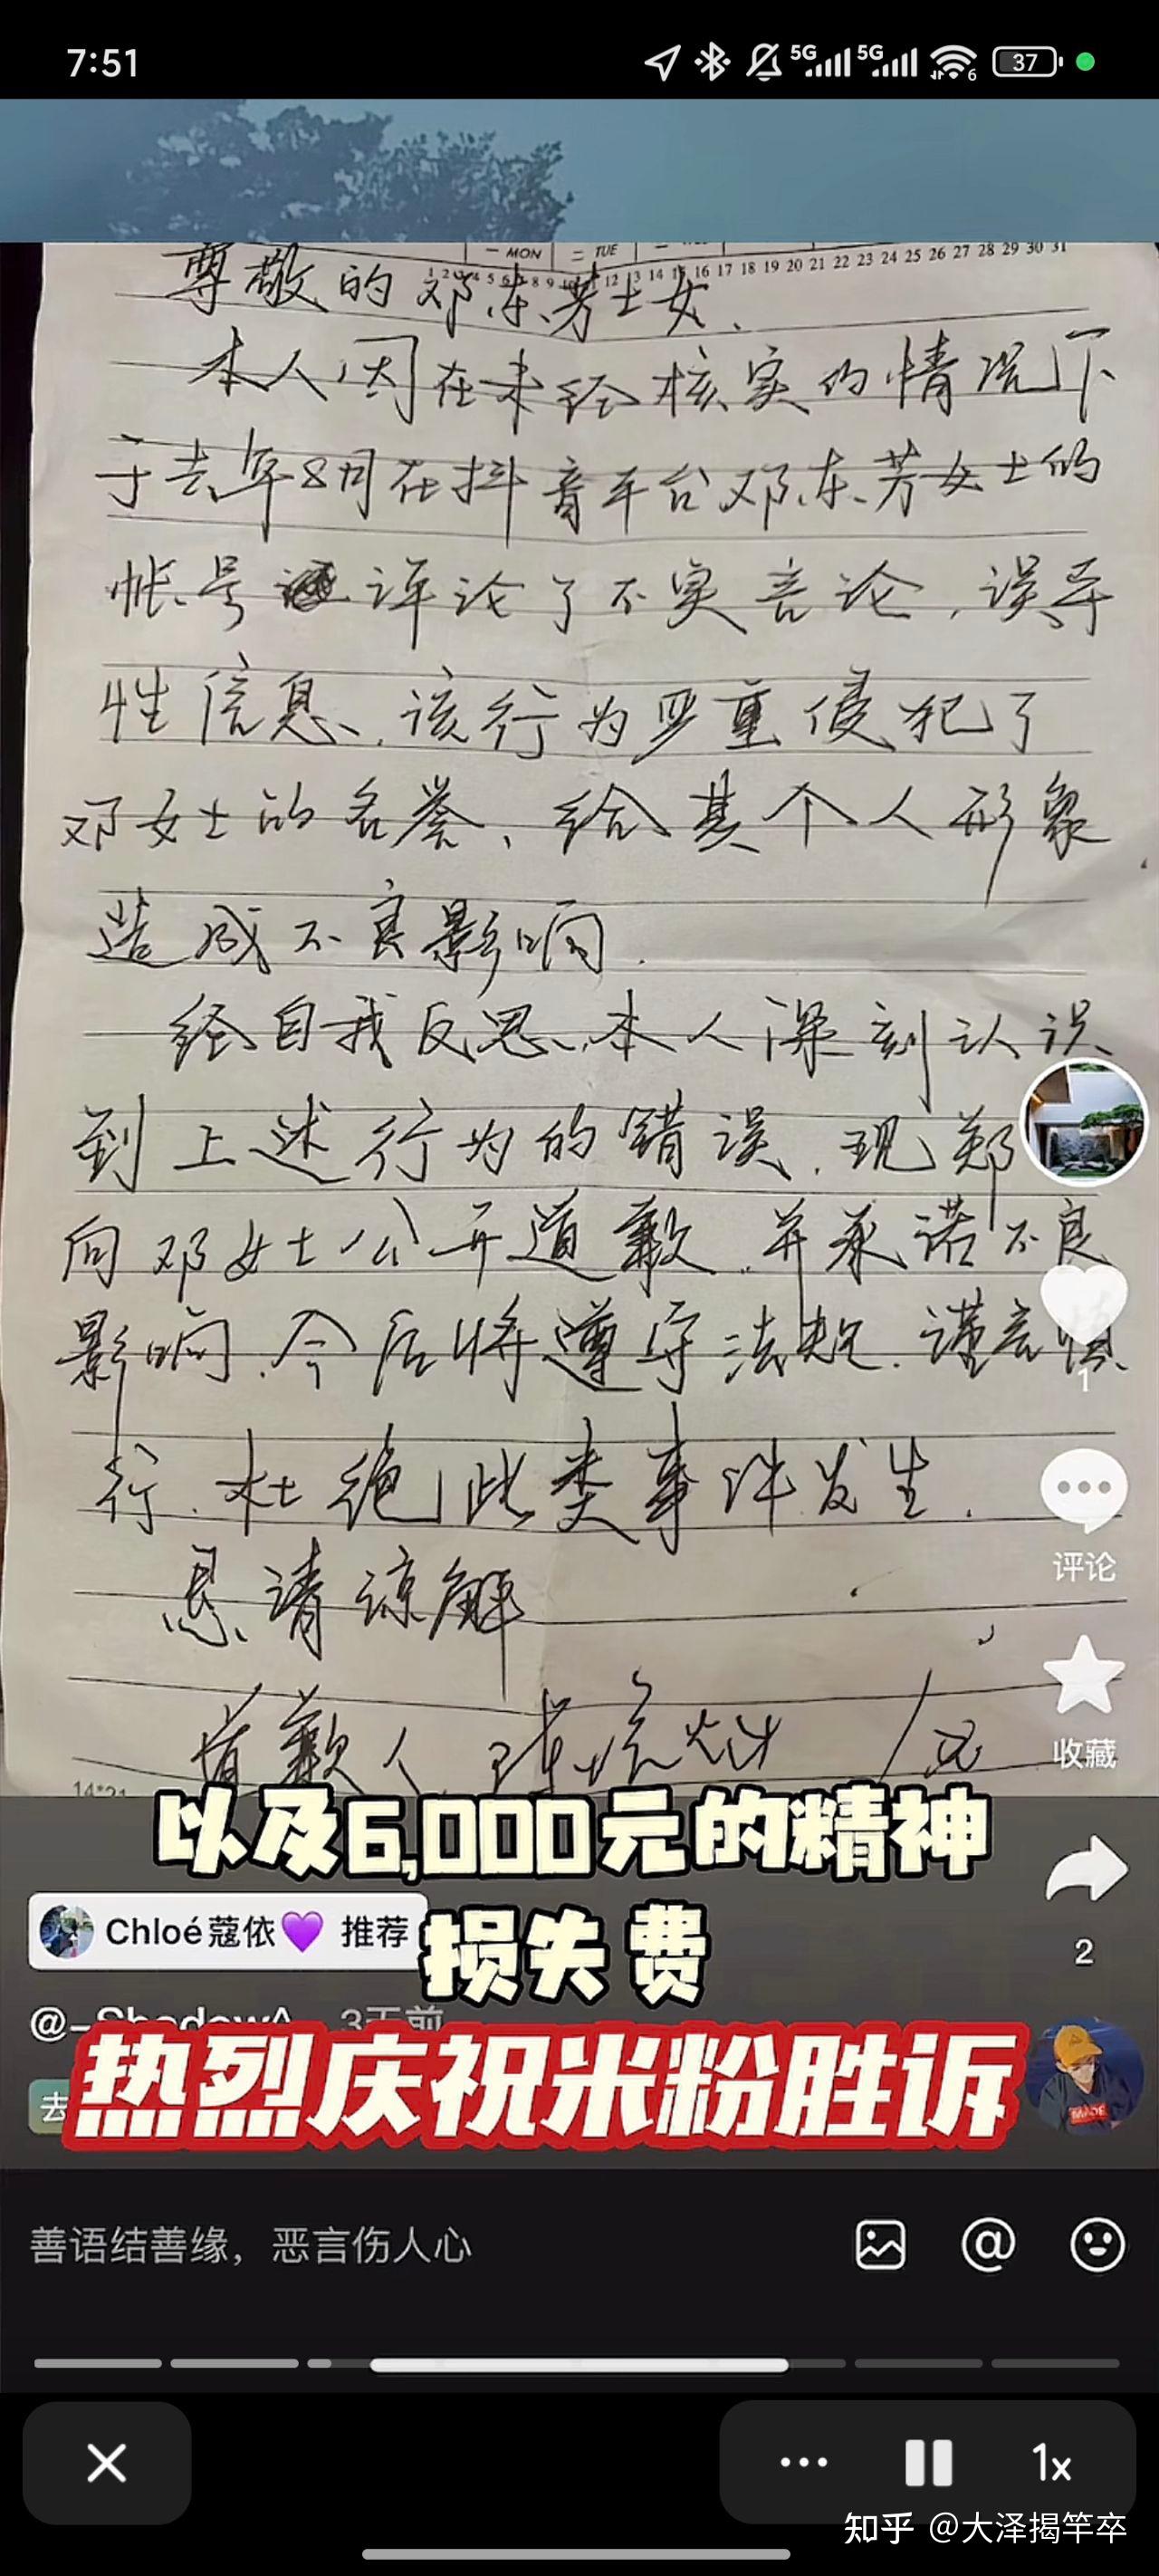 7:51
5G 5G 6 37
一 MON 二 TUE
1 2 3 4 5 6 7 8 9 10 11 12 13 14 15 16 17 18 19 20 21 22 23 24 25 26 27 28 29 30 31
尊敬的邓东芳士女.
本人因在未经核实的情况下
于去年8月在抖音平台邓东芳女士的
帐号评论了不实言论,误导
性信息、该行为严重侵犯了
邓女士的名誉、给其个人形象
造成不良影响.
经自我反思,本人深刻认识
到上述行为的错误.现郑
向邓女士公开道歉.并承诺不良
影响.今后将遵守法规.谨言慎
行.杜绝此类事件发生.
恳请谅解
道歉人
14*21
1
评论
收藏
以及6,000元的精神
损失费
2
Chloé蔻依💜 推荐
@-ShadowA 3天前
去
热烈庆祝米粉胜诉
善语结善缘，恶言伤人心
1x
知乎 @大泽揭竿卒